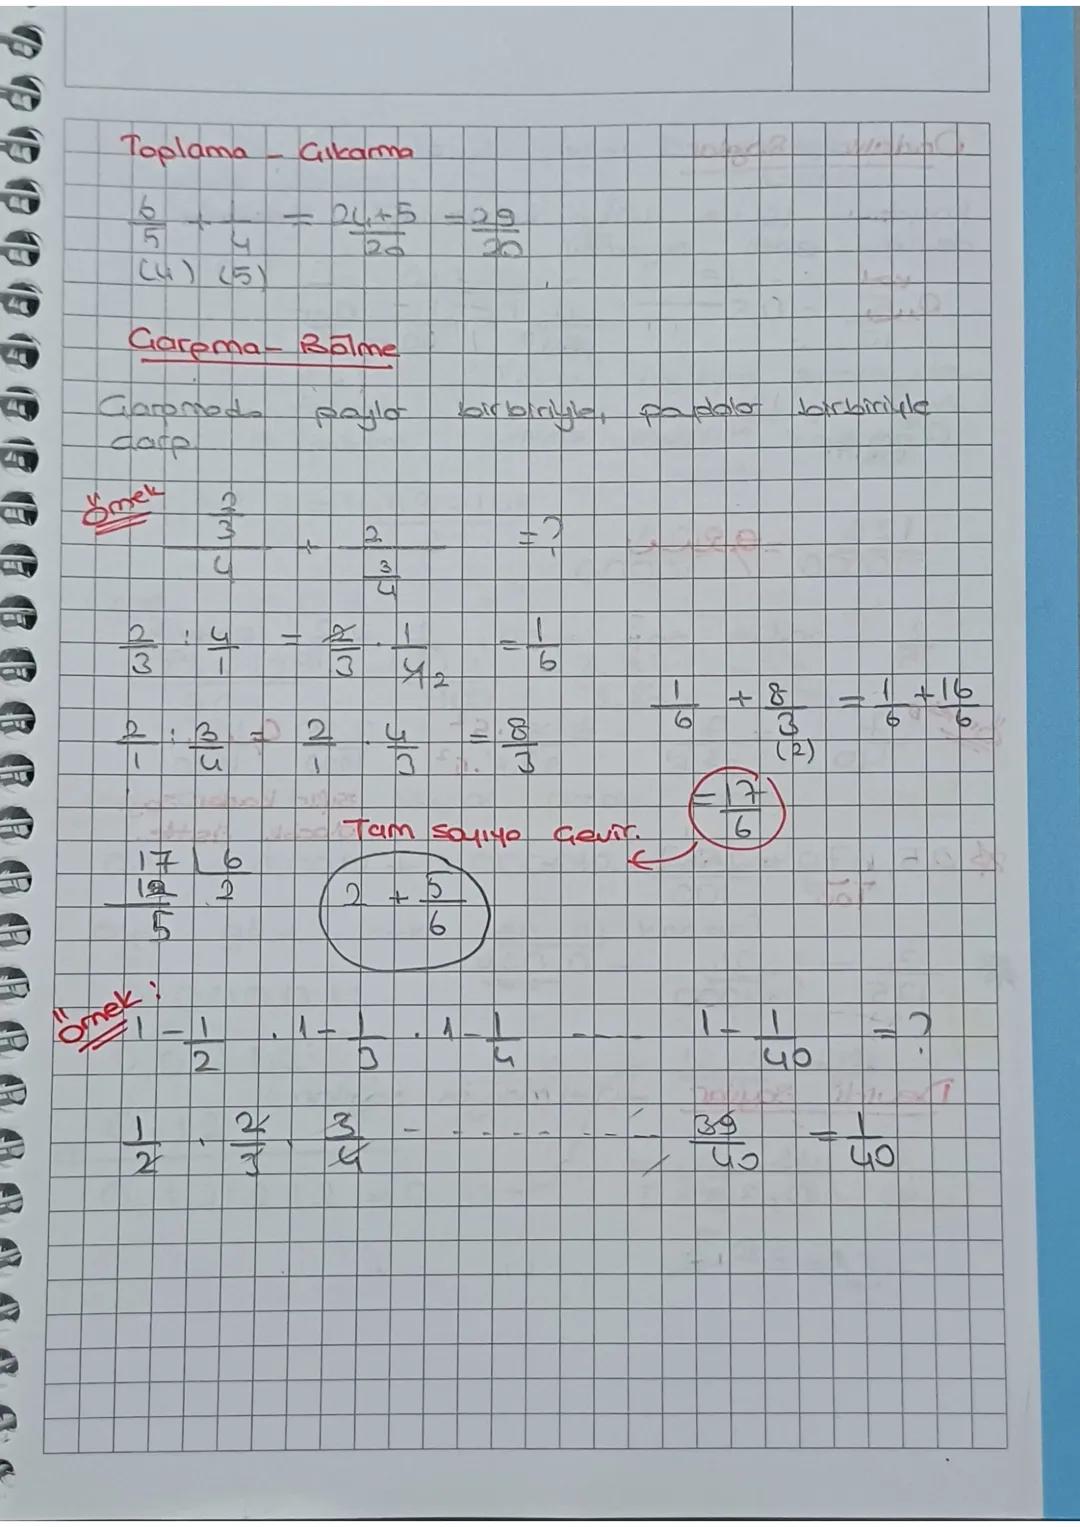 Toplama - Çıkarma
6/5 + 1/4 = 24+5/20 = 29/20
(4) (5)
Çarpma - Bölme
Çarpmada paylar birbiriyle, paydalar birbiriyle
çarp
Örnek
2/3/4 + 2/3/4 = ?
2/3 : 4/1 = 2/3 . 1/4 2 = 1/6
1/6 + 8/3 = 1/6 + 16/6
(2)
2/1 : 3/4 = 2/1 . 4/3 = 8/3
= 17/6
Tam sayıya Çevir.
17 | 6
12 2
5
2 + 5/6
Örnek:
1 - 1/2 . 1 - 1/3 . 1 - 1/4 ---- 1 - 1/40 = ?
1/2 . 2/3 . 3/4 - - - - - - - - 39/40 = 1/40